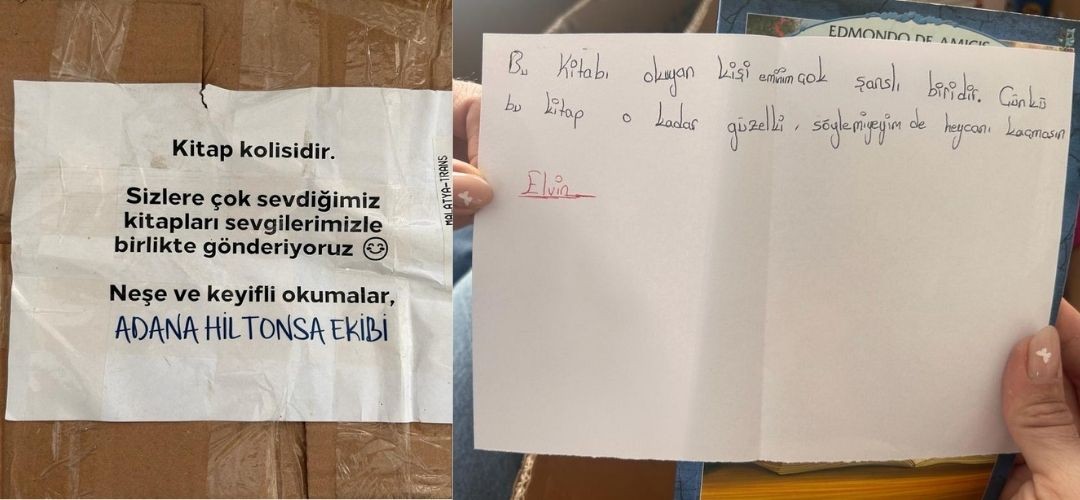 Kitap kolisidir.
Sizlere çok sevdiğimiz
kitapları sevgilerimizle
birlikte gönderiyoruz 😊
Neşe ve keyifli okumalar,
ADANA HİLTONSA EKİBİ
MALATYA-TRANS
EDMONDO DE AMICIS
Bu Kitabı okuyan kişi eminim çok şanslı biridir. Çünkü
bu kitap o kadar güzelki, söylemiyeyim de heycanı kaçmasın
Elvin